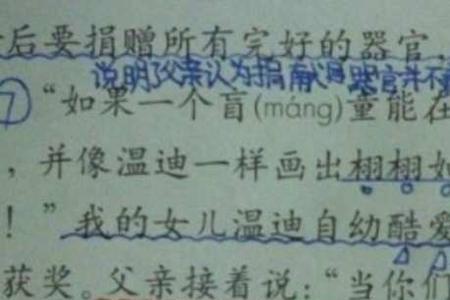 后要捐赠所有完好的器官,
说明父亲认为捐献器官并不
⑦“如果一个盲(máng)童能在
,并像温迪一样画出栩栩如
!”我的女儿温迪自幼酷爱
获奖。父亲接着说:“当你们